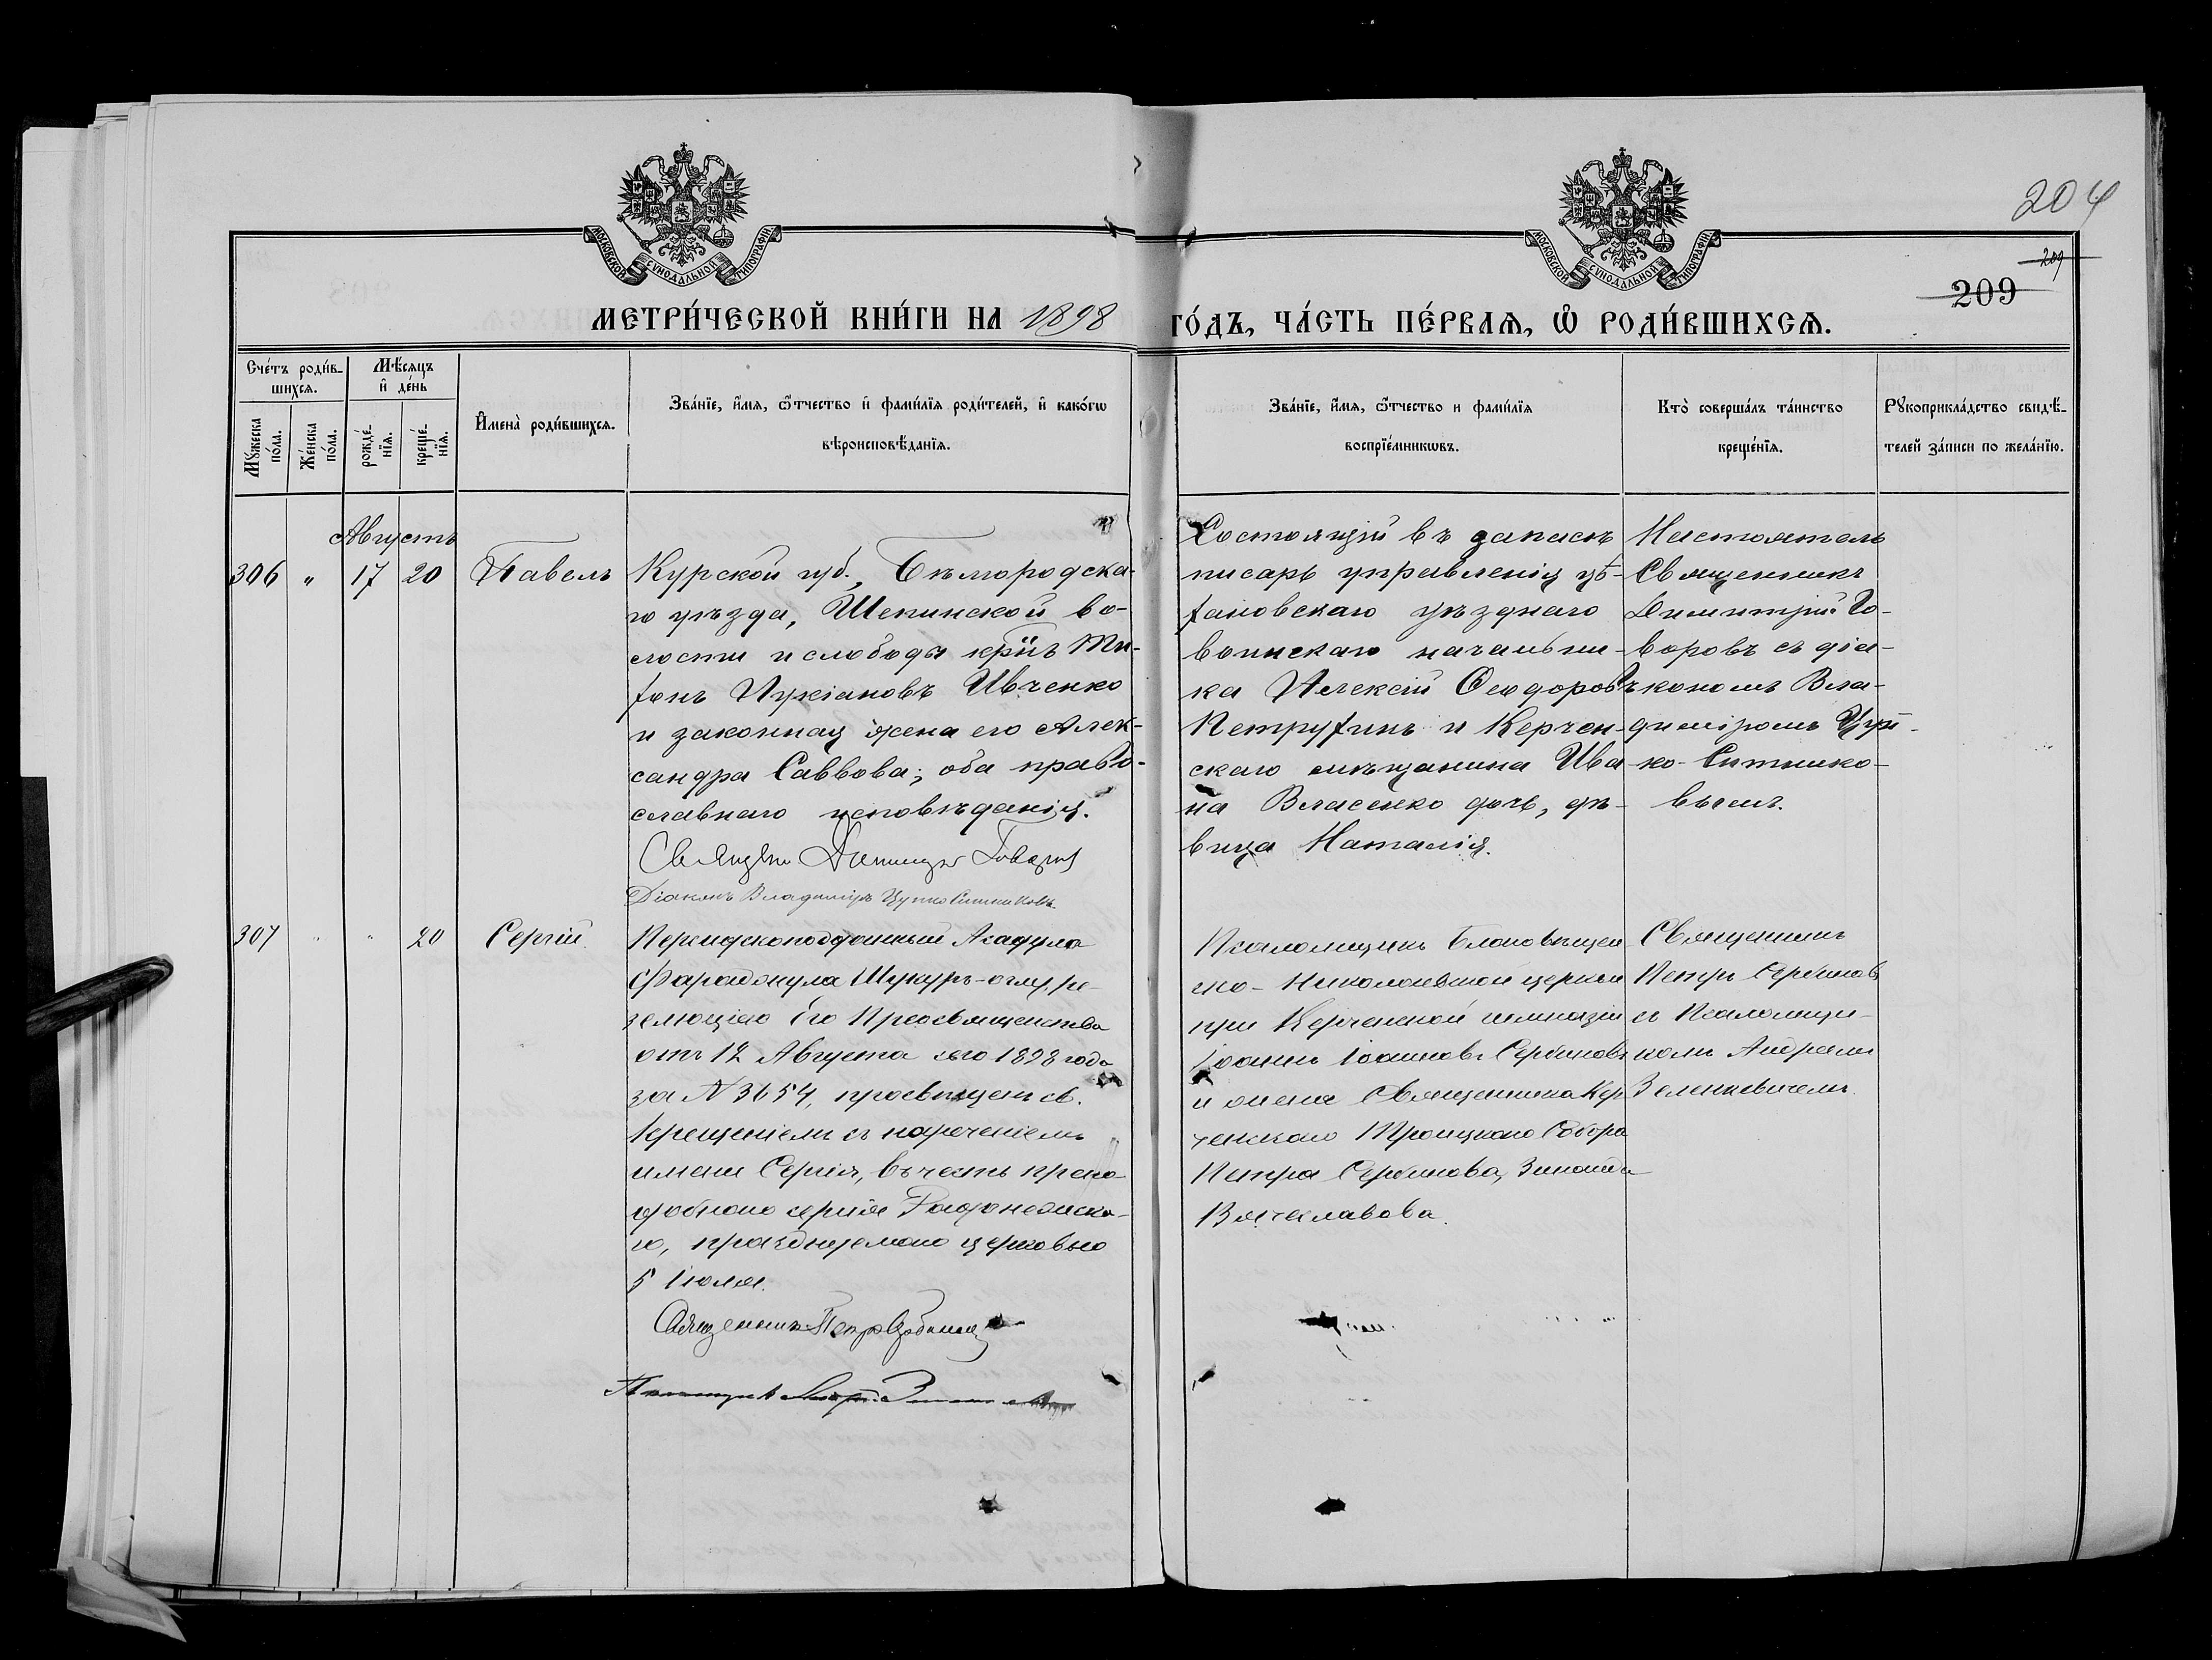 204
209
209
МОСКОВСКОЙ СУНОДАЛЬНОЙ ТИПОГРАФІИ
МОСКОВСКОЙ СУНОДАЛЬНОЙ ТИПОГРАФІИ
МЕТРИ́ЧЕСКОЙ КНИ́ГИ НА 1898 ГО́ДЪ, ЧА́СТЬ ПЕ́РВАѦ, Ѡ҆ РОДИ́ВШИХСѦ.
Сче́тъ роди́в-
шихсѧ.
Мꙋжеска по́ла.
Же́нска по́ла.
Мѣ́сѧцъ
и҆ де́нь
рожде́нїѧ.
креще́нїѧ.
И҆мена̀ роди́вшихсѧ.
Зва́нїе, и҆́мѧ, ѻ҆́тчество и҆ фами́лїѧ роди́телей, и҆ како́гѡ
вѣроисповѣ́данїѧ.
Зва́нїе, и҆́мѧ, ѻ҆́тчество и фами́лїѧ
воспрїе́мникѡвъ.
Кто̀ соверша́лъ та́инство
креще́нїѧ.
Рꙋкоприкла́дство свидѣ́-
телей за́писи по жела́нїю.
Августъ
306 " 17 20 Павелъ
Курской губ., Бѣлгородска-
го уѣзда, Шепинской во-
лости и слободы кр͠нъ Три-
фонъ Лукіановъ Ивченко
и законная жена его Алек-
сандра Саввова; оба право-
славнаго исповѣданія.
Священ Димитрі Говоровъ
Діаконъ Владиміръ Цупко Ситниковъ
Состоящій въ запасѣ
писарь управленія
уѣзднаго
воинскаго начальни-
ка Алексій Ѳеодоровъ
Петрухинъ и Керчен-
скаго мѣщанина Ива
на Власенко дочь, дѣ-
вица Наталія.
Настоятель
Священникъ
Димитрій Го-
воровъ съ діа-
кономъ Вла-
диміромъ Цуп-
ко-Ситнико-
вымъ.
307 " " 20 Сергій.
Персидскоподданный Асадула
Фараджула Шукуръ-оглу, ре-
золюціею Его Преосвященства
отъ 12 Августа сего 1898 года
за № 3654, просвѣщенъ св.
Крещеніемъ съ нареченіемъ
имени Сергія, въ честь препо-
добнаго Сергія Радонежска-
го, празднуемаго церковью
5 Іюля.
Священникъ Петръ Сербиновъ
Псаломщикъ Благовѣщен
ско-Николаевской церкви
при Керченской гимназіи
Іоаннъ Іоанновъ Сербиновъ
и жена Священника Кер
ченскаго Троицкаго Собора
Петра Сербинова, Зинаида
Вячеславова.
Священникъ
Петръ Сербиновъ
съ Псаломщи-
комъ Андреемъ
Зеленкевичемъ.